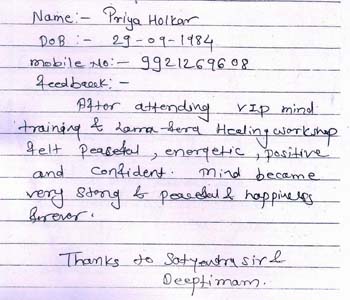 Name:- Priya Holkar
DOB :- 29-09-1984
mobile No:- 9921269608
feedback:-
After attending VIP mind
training & Lama-fera Healing workshop
felt peaceful, energetic, positive
and confident. Mind became
very stong & peaceful & happiness
forever.
Thanks to Satyendra sir &
Deeptimam.